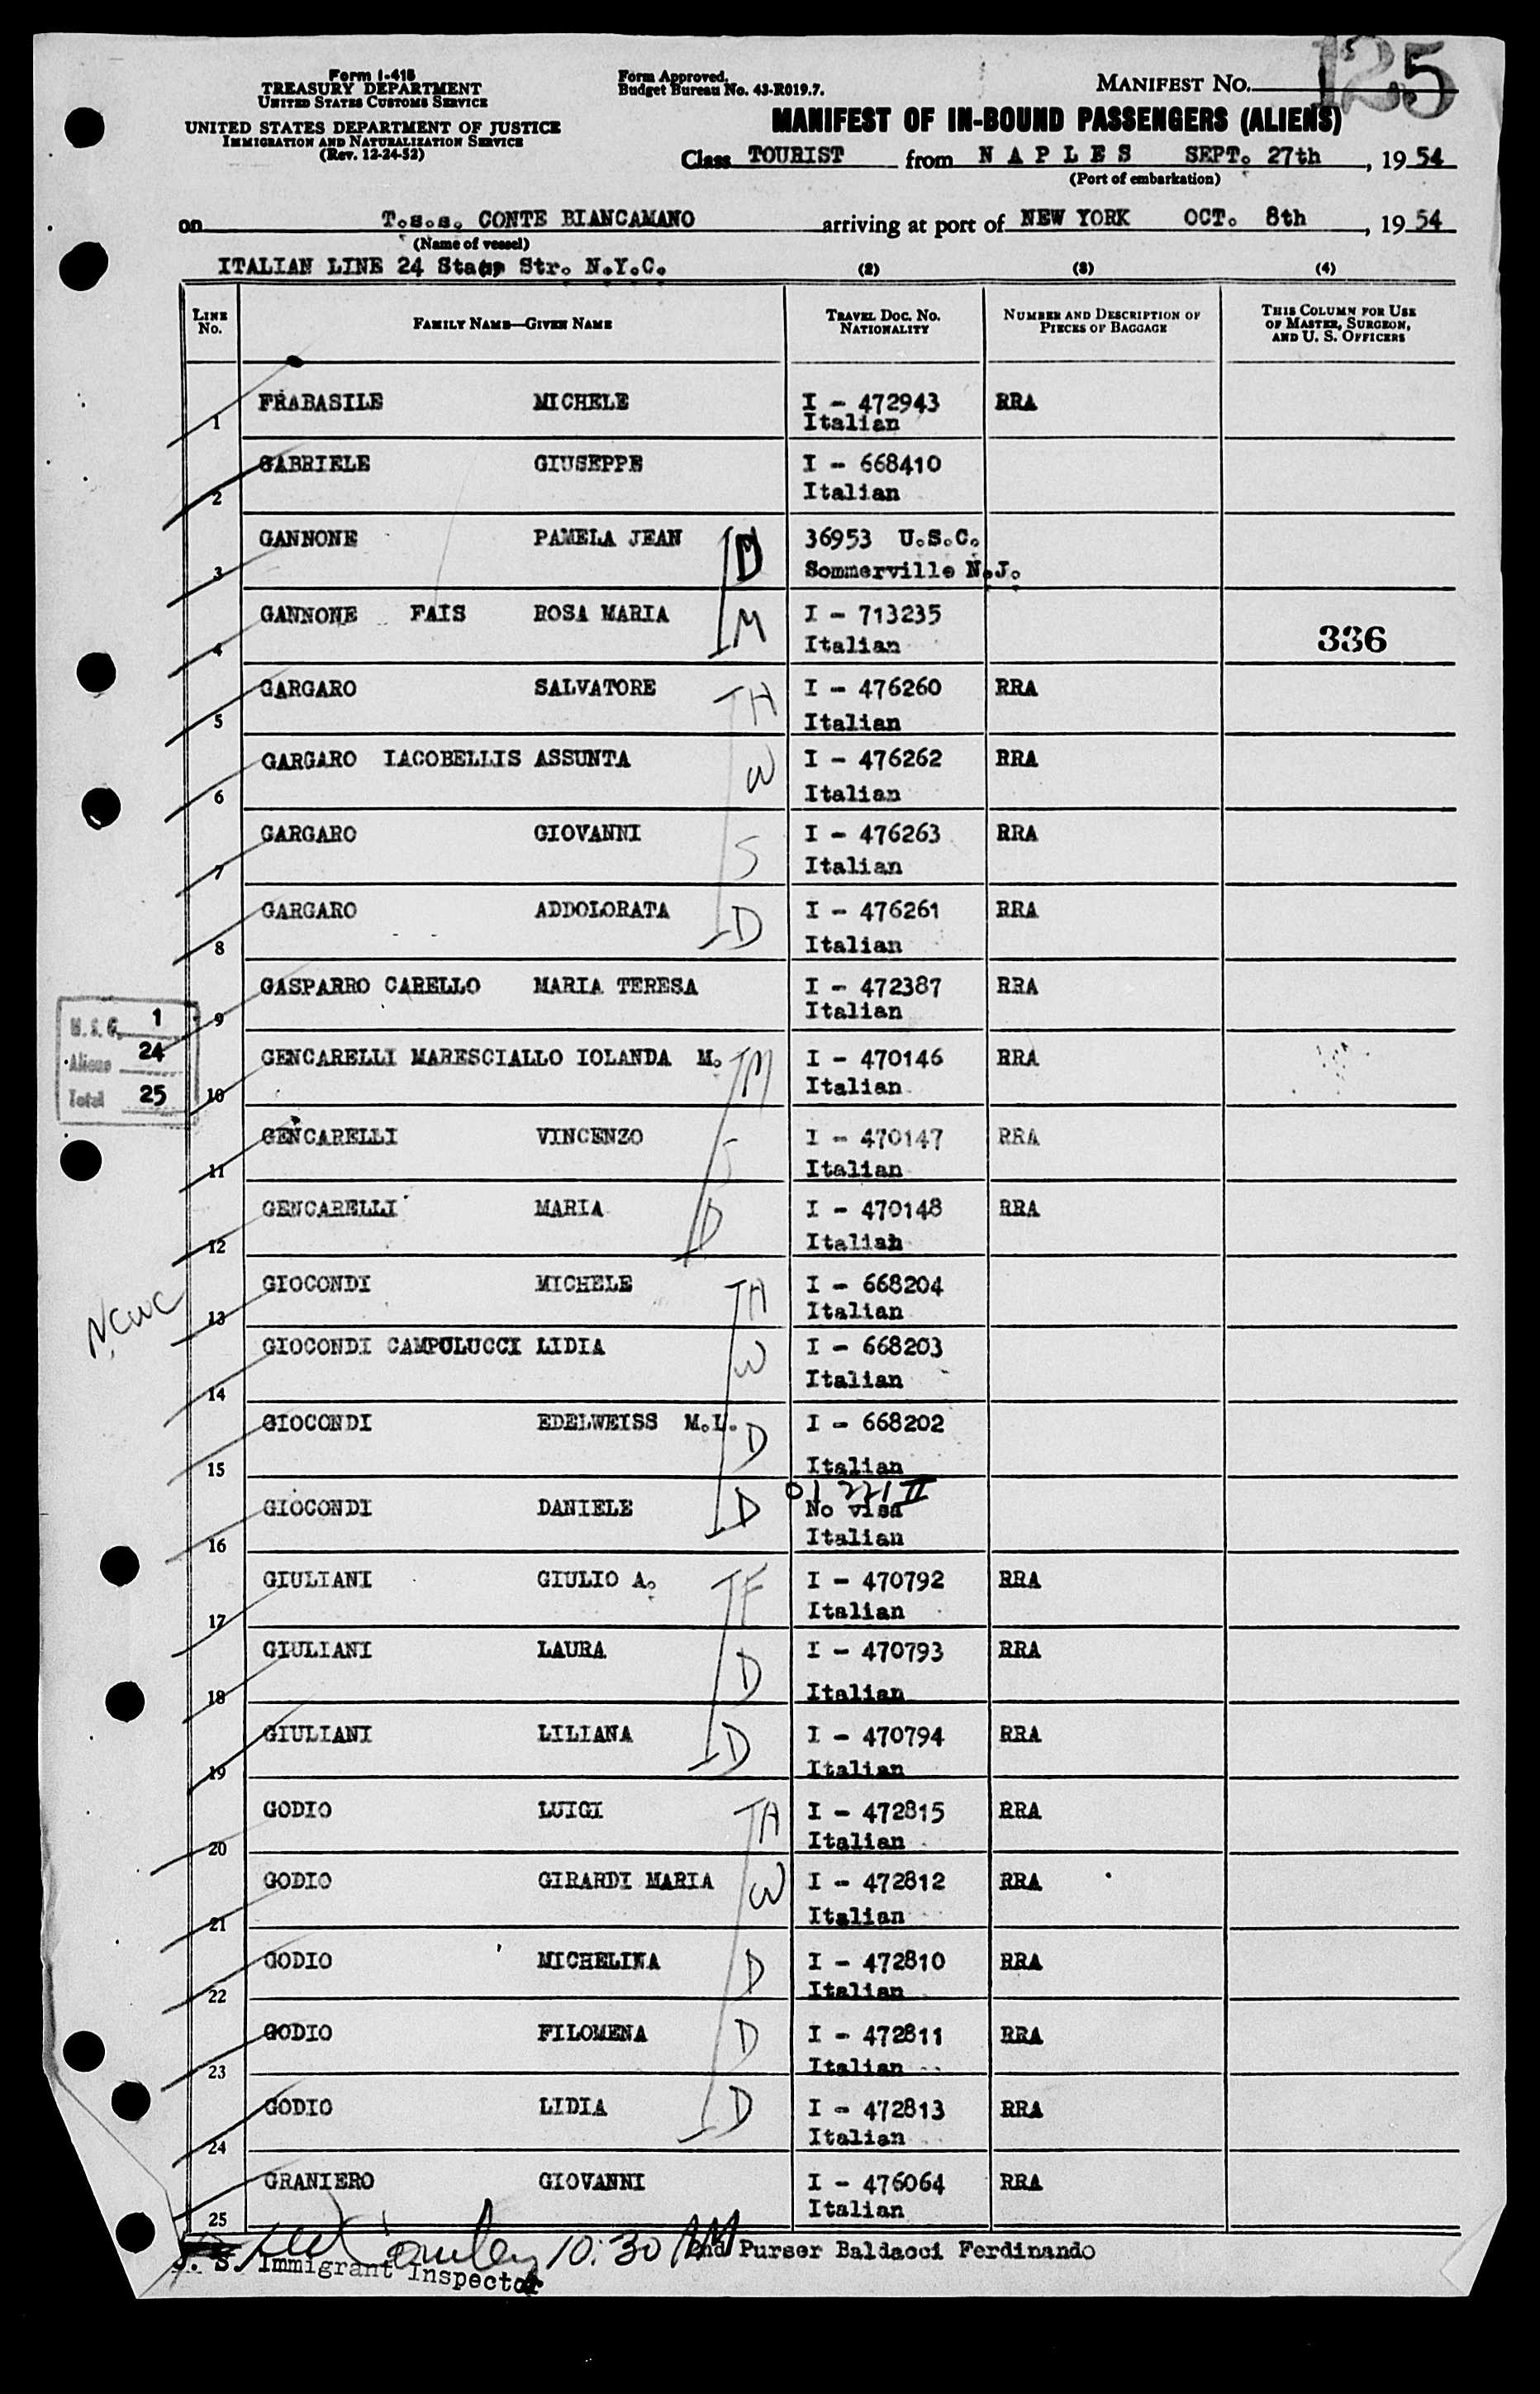 Form I-418
TREASURY DEPARTMENT
UNITED STATES CUSTOMS SERVICE
UNITED STATES DEPARTMENT OF JUSTICE
IMMIGRATION AND NATURALIZATION SERVICE
(Rev. 12-24-52)
Form Approved.
Budget Bureau No. 43-R019.7.
MANIFEST NO. 125
MANIFEST OF IN-BOUND PASSENGERS (ALIENS)
Class TOURIST from NAPLES SEPT. 27th, 19 54
(Port of embarkation)
on T.s.s. CONTE BIANCAMANO arriving at port of NEW YORK OCT. 8th, 19 54
(Name of vessel)
ITALIAN LINE 24 Str. N.Y.C. (2) (3) (4)
LINE No. FAMILY NAME—GIVEN NAME TRAVEL DOC. NO. NATIONALITY NUMBER AND DESCRIPTION OF PIECES OF BAGGAGE THIS COLUMN FOR USE OF MASTER, SURGEON, AND U. S. OFFICERS
1 FRABASILE MICHELE I - 472943 RRA
Italian
2 GABRIELE GIUSEPPE I - 668410
Italian
3 GANNONE PAMELA JEAN D 36953 U.S.C.
Sommerville N.J.
4 GANNONE FAIS ROSA MARIA M I - 713235
Italian 336
5 GARGARO SALVATORE H I - 476260 RRA
Italian
6 GARGARO IACOBELLIS ASSUNTA W I - 476262 RRA
Italian
7 GARGARO GIOVANNI S I - 476263 RRA
Italian
8 GARGARO ADDOLORATA D I - 476261 RRA
Italian
9 GASPARRO CARELLO MARIA TERESA I - 472387 RRA
Italian
U.S.C. 1
Aliens 24
Total 25
10 GENCARELLI MARESCIALLO IOLANDA M. M I - 470146 RRA
Italian
11 GENCARELLI VINCENZO S I - 470147 RRA
Italian
12 GENCARELLI MARIA D I - 470148 RRA
Italiah
NCWC
13 GIOCONDI MICHELE H I - 668204
Italian
14 GIOCONDI CAMPOLUCCI LIDIA W I - 668203
Italian
15 GIOCONDI EDELWEISS M.L. D I - 668202
Italian
16 GIOCONDI DANIELE D No visa
Italian
17 GIULIANI GIULIO A. F I - 470792 RRA
Italian
18 GIULIANI LAURA D I - 470793 RRA
Italian
19 GIULIANI LILIANA D I - 470794 RRA
Italian
20 GODIO LUIGI H I - 472815 RRA
Italian
21 GODIO GIRARDI MARIA W I - 472812 RRA
Italian
22 GODIO MICHELINA D I - 472810 RRA
Italian
23 GODIO FILOMENA D I - 472811 RRA
Italian
24 GODIO LIDIA D I - 472813 RRA
Italian
25 GRANIERO GIOVANNI I - 476064 RRA
Italian
10:30 AM 2nd Purser Baldacci Ferdinando
U. S. Immigrant Inspector